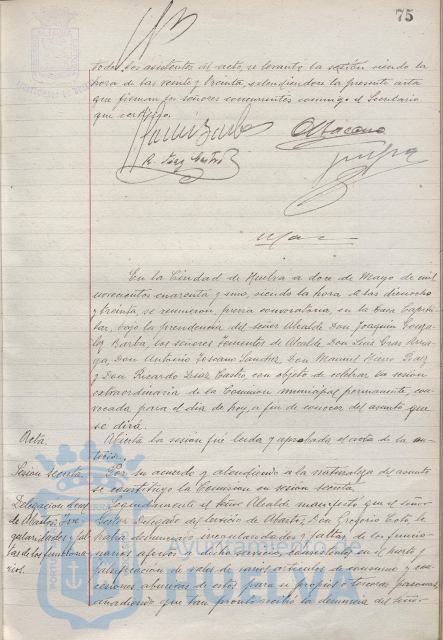 75
todos los asistentes del acto, se levantó la sesión siendo la
hora de las veinte y treinta, extendiéndose la presente acta
que firman los señores concurrentes conmigo el Secretario
que certifico.
En la Ciudad de Huelva a doce de Mayo de mil
novecientos cuarenta y uno, siendo la hora de las dieciocho
y treinta, se reunieron, previa convocatoria, en la Casa Capitu-
lar, bajo la presidencia del señor Alcalde Don Joaquin Gonza-
lez Barba, los señores Tenientes de Alcalde Don Luis
Don Antonio Toscano Sanchez, Don Manuel
y Don Ricardo Diaz Castro, con objeto de celebrar la sesión
extraordinaria de la Comision municipal permanente, con-
vocada para el dia de hoy, a fin de conocer del asunto que
se dirá.
Acta.
Abierta la sesión fué leida y aprobada el acta de la an-
terior.
Sesion secreta.
Por su acuerdo y atendiendo a la naturaleza del asunto
se constituyó la Comision en sesion secreta.
Delegacion de
Seguidamente el señor Alcalde manifestó que el señor
Delegado del servicio de Abastos, Don Gregorio
denunciado irregularidades y faltas de los funcio-
narios afectos a dicho servicio, consistentes en el
falsificación de vales de varios articulos de consumo y
abusivas de estos para si propios o terceras personas,
añadiendo que tan pronto recibió la denuncia del señor
Ayuntamiento de
HUELVA